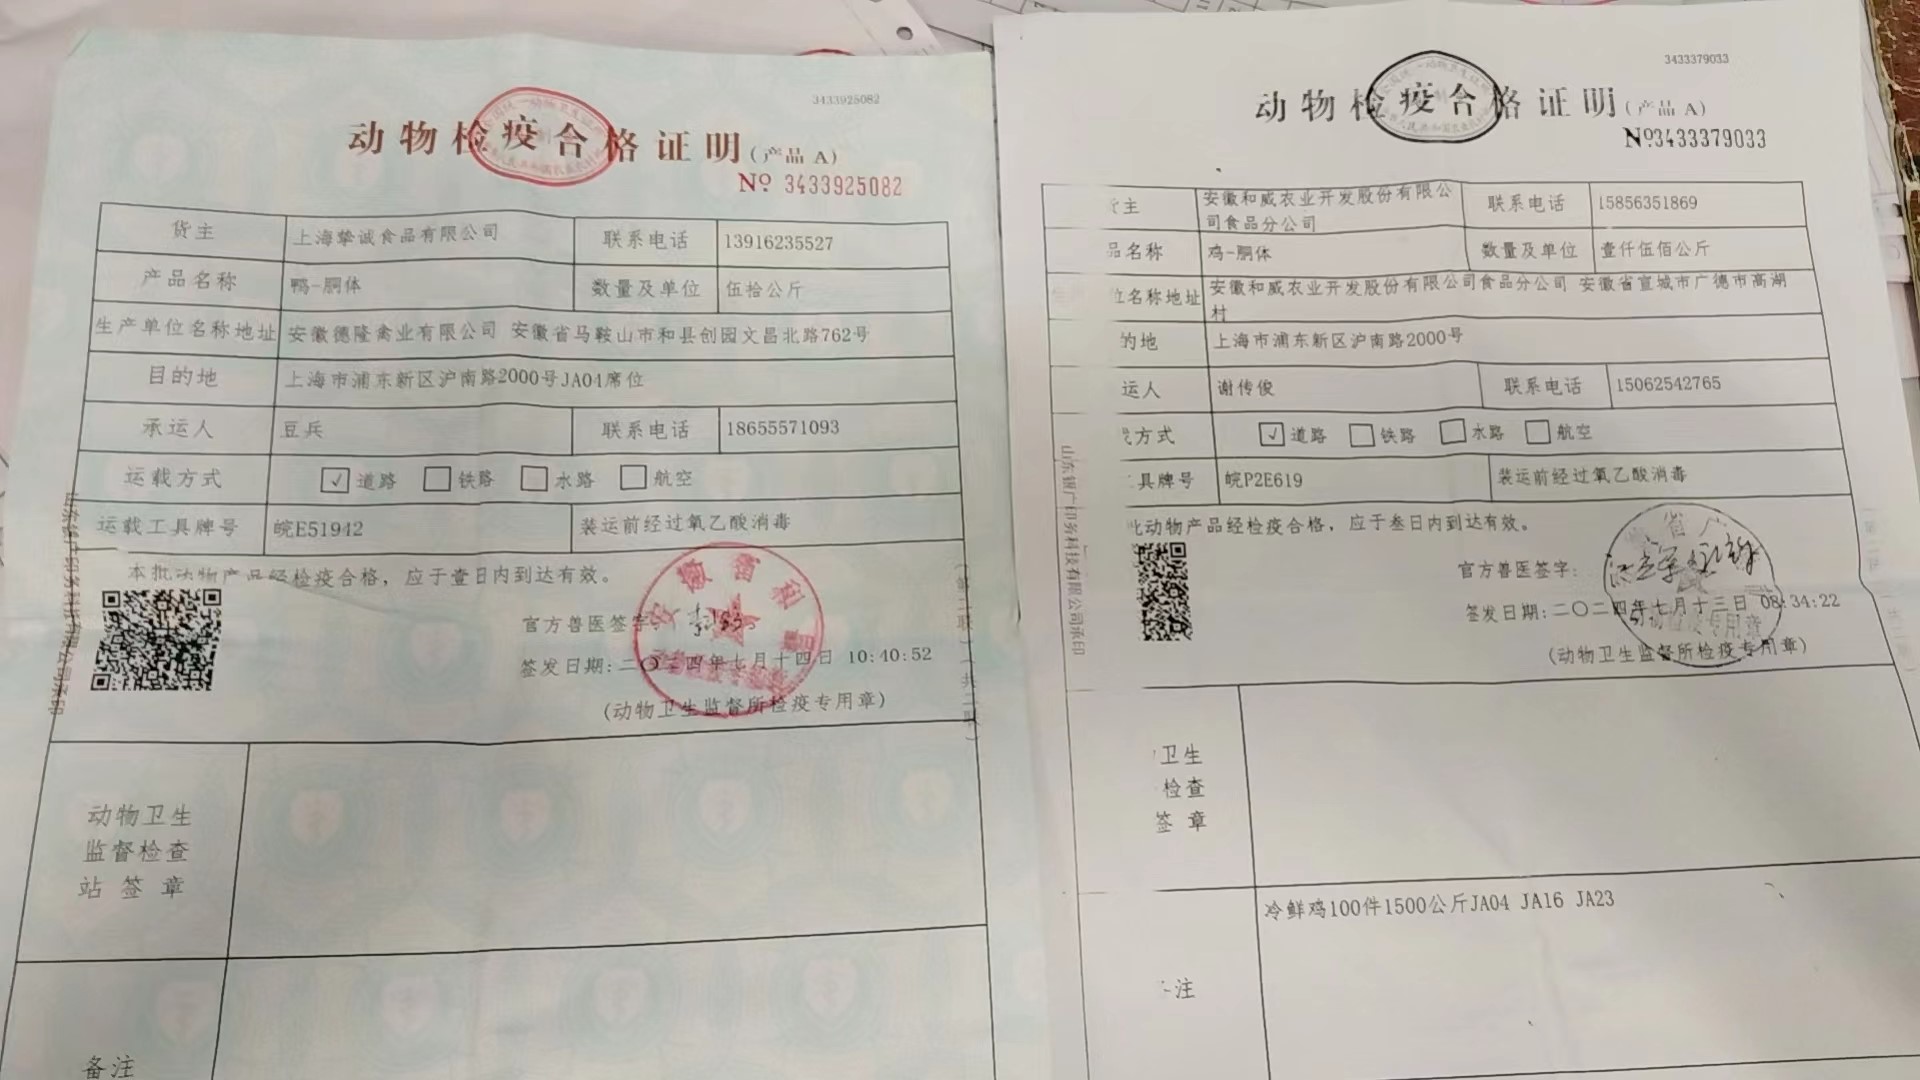 3433925082
动物检疫合格证明(产品 A)
Nº 3433925082
货主 上海挚诚食品有限公司 联系电话 13916235527
产品名称 鸭-胴体 数量及单位 伍拾公斤
生产单位名称地址 安徽德隆禽业有限公司 安徽省马鞍山市和县创园文昌北路762号
目的地 上海市浦东新区沪南路2000号JA04席位
承运人 豆兵 联系电话 18655571093
运载方式 ☑道路 □铁路 □水路 □航空
运载工具牌号 皖E51942 装运前经过氧乙酸消毒
本批动物产品经检疫合格，应于壹日内到达有效。
官方兽医签字:
签发日期:二〇二四年七月十四日 10:40:52
(动物卫生监督所检疫专用章)
动物卫生
监督检查
站 签 章
备注
3433379033
动物检疫合格证明(产品 A)
Nº3433379033
货主 安徽和威农业开发股份有限公
司食品分公司 联系电话 15856351869
品名称 鸡-胴体 数量及单位 壹仟伍佰公斤
位名称地址 安徽和威农业开发股份有限公司食品分公司 安徽省宣城市广德市高湖
村
的地 上海市浦东新区沪南路2000号
运人 谢传俊 联系电话 15062542765
方式 ☑道路 □铁路 □水路 □航空
具牌号 皖P2E619 装运前经过氧乙酸消毒
批动物产品经检疫合格，应于叁日内到达有效。
官方兽医签字:
签发日期:二〇二四年七月十三日 08:34:22
(动物卫生监督所检疫专用章)
山东银广印务科技有限公司承印
卫生
检查
签 章
注
冷鲜鸡100件1500公斤JA04 JA16 JA23